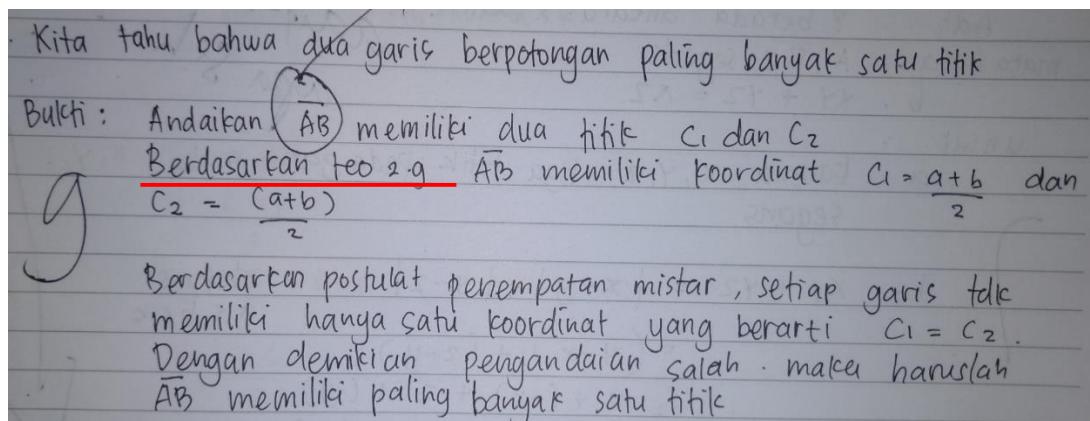 Kita tahu bahwa dua garis berpotongan paling banyak satu titik
Bukti : Andaikan AB memiliki dua titik C1 dan C2
Berdasarkan teo 2.9 AB memiliki koordinat C1 = a+b/2 dan
C2 = (a+b)/2
9
Berdasarkan postulat penempatan mistar, setiap garis tdk
memiliki hanya satu koordinat yang berarti C1 = C2.
Dengan demikian pengandaian salah. maka haruslah
AB memiliki paling banyak satu titik